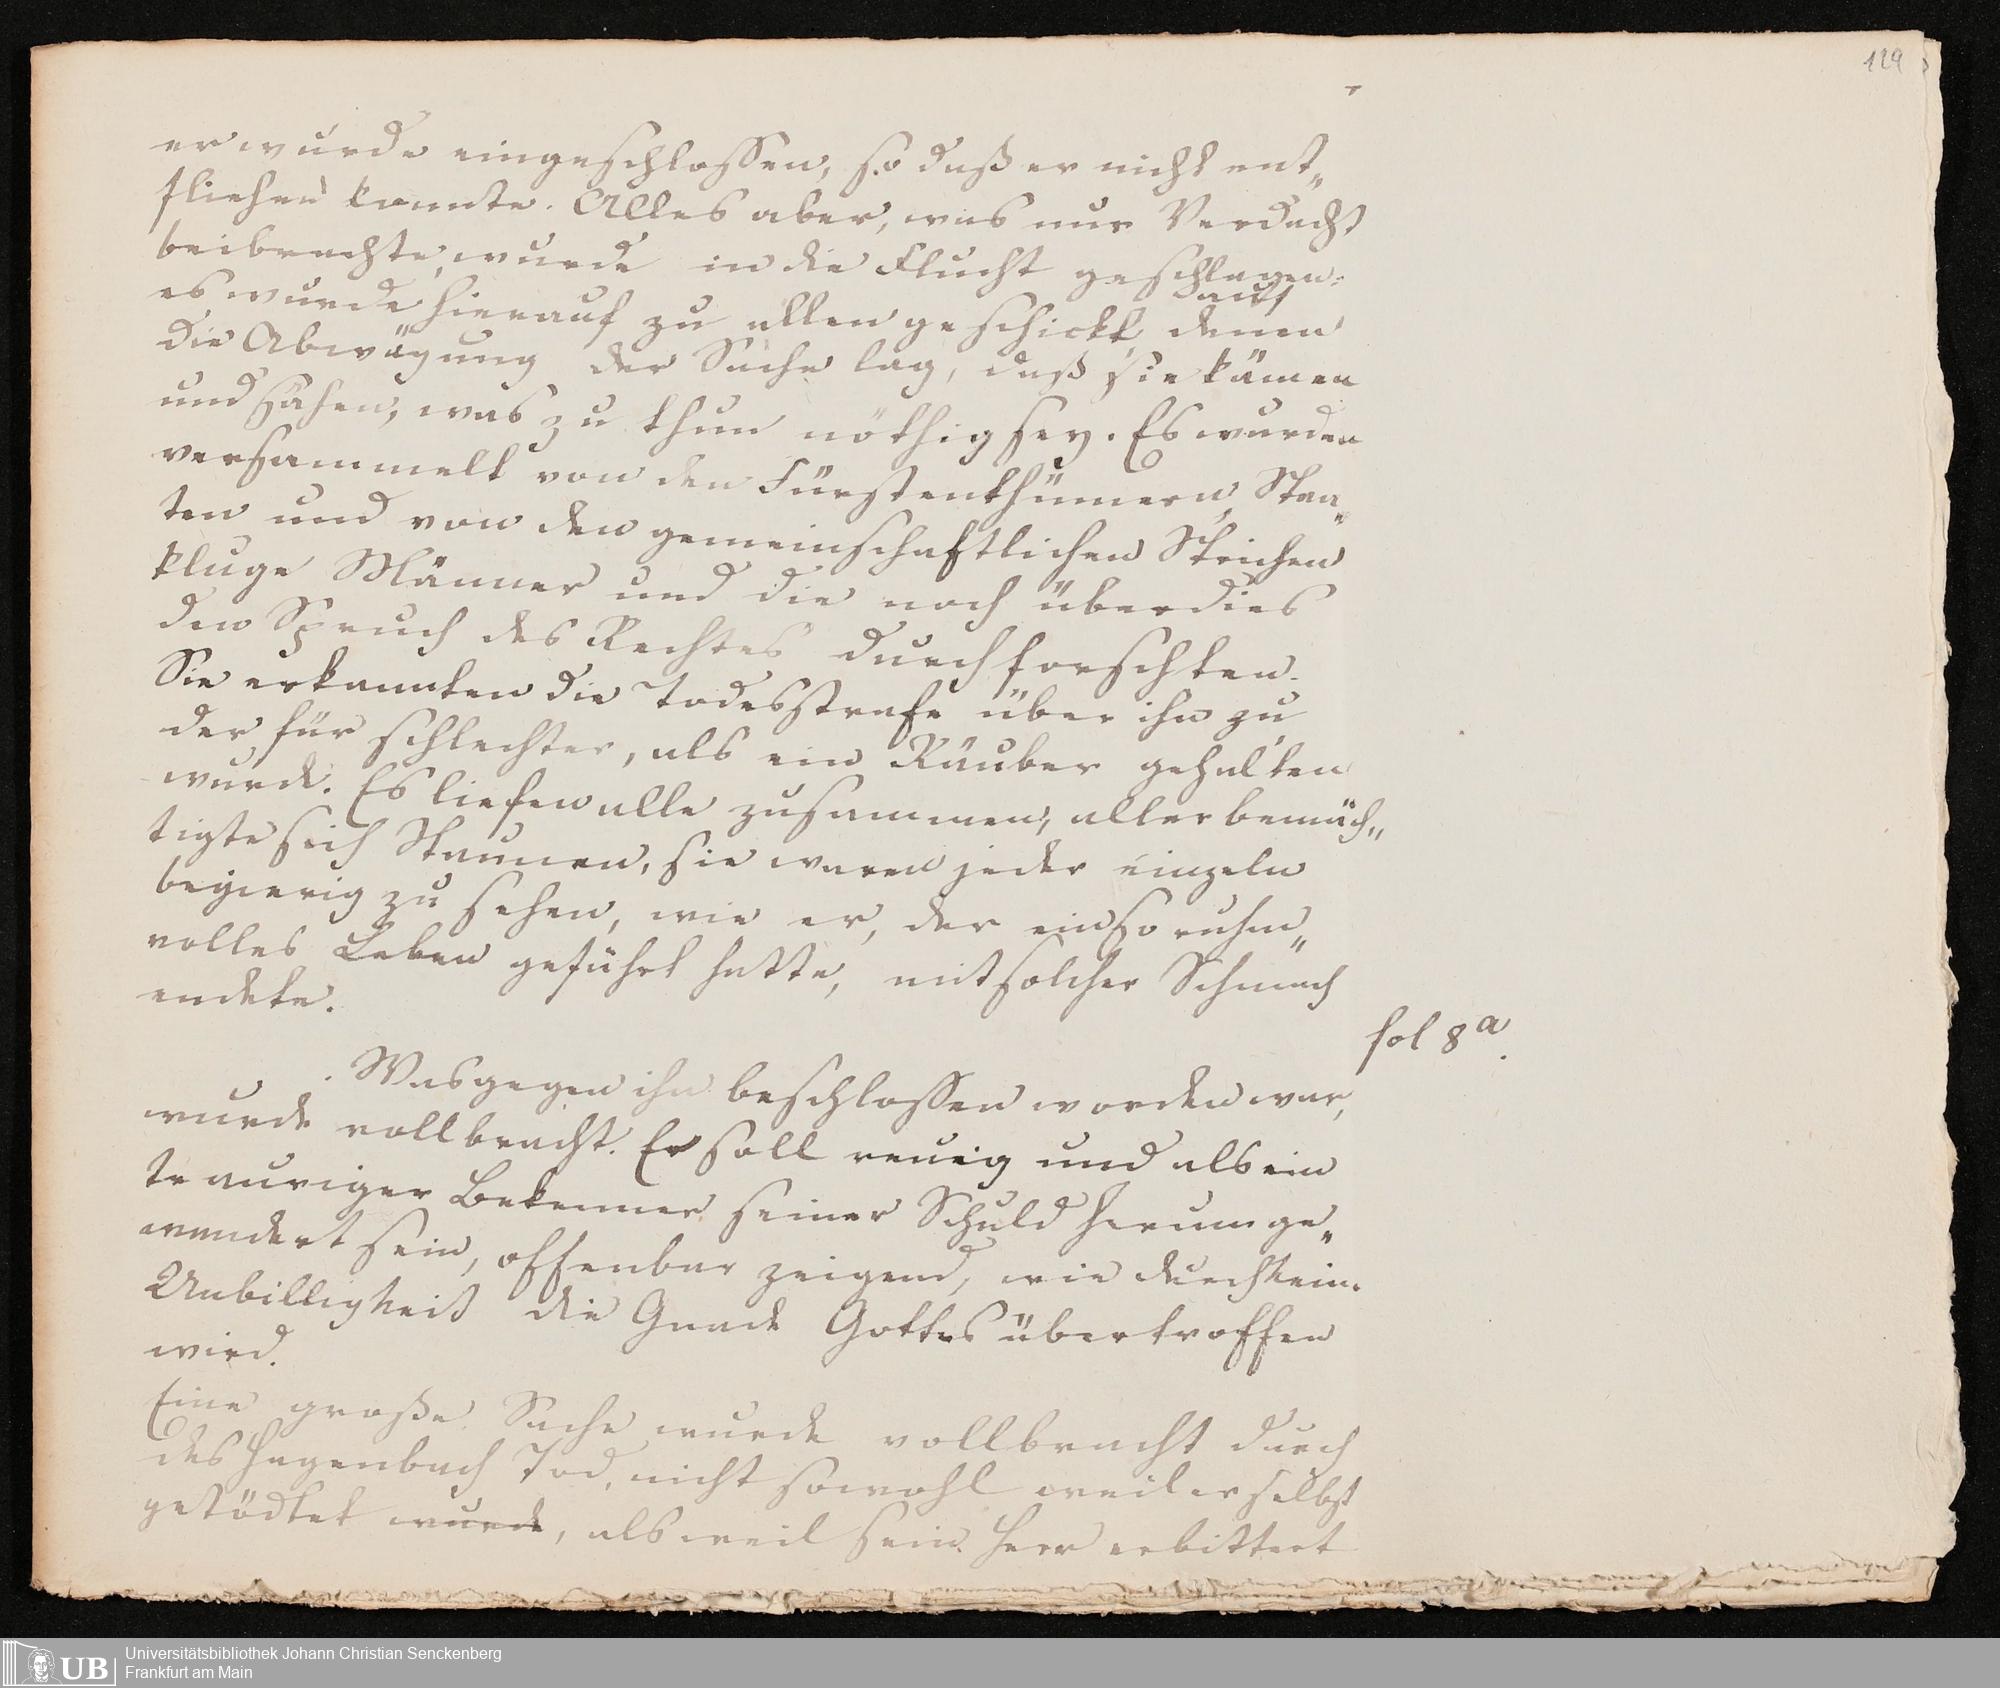 129
er wurde eingeschlossen, so daß er nicht ent„
fliehen konnte. Alles aber, was nur Verdacht
beibrachte, wurde in die Flucht geschlagen.
es wurde hierauf zu allen geschickt, auf denen
die Abwägung der Sache lag, daß sie kämen
und sähen, was zu thun nöthig sey. Es wurden
versammelt von den Fürstenthümern, Staa„
ten und von den gemeinschaftlichen Strichen
kluge Männer und die noch überdies
den Spruch des Rechtes durchforschten.
Sie erkannten die Todesstrafe über ihn zu
der für schlechter, als ein Räuber gehalten
wurde. Es liefen alle zusammen, aller bemäch„
tigte sich Staunen, sie waren jeder einzeln
begierig zu sehen, wie er, der ein so ruhm„
volles Leben geführt hatte, mit solcher Schmach
endete.
fol 8a.
Was gegen ihn beschlossen worden war,
wurde vollbracht. Er soll reuig und als ein
trauriger Bekenner seiner Schuld herumge„
wandert sein, offenbar zeigend, wie durch keine
Unbilligkeit die Gnade Gottes übertroffen
wird.
Eine große Sache wurde vollbracht durch
des Hagenbach Tod, nicht sowohl weil er selbst
getödtet wurde, als weil sein Herr erbittert
UB
Universitätsbibliothek Johann Christian Senckenberg
Frankfurt am Main